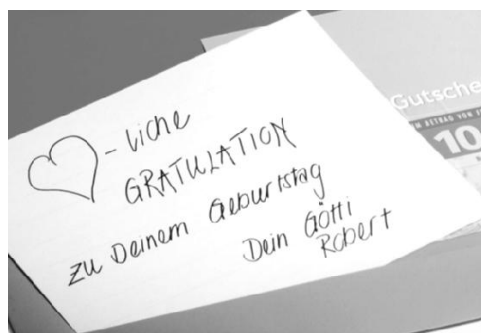 -liche
GRATULATION
zu Deinem Geburtstag
Dein Götti
Robert
Gutsche
M BETRAG VON
10